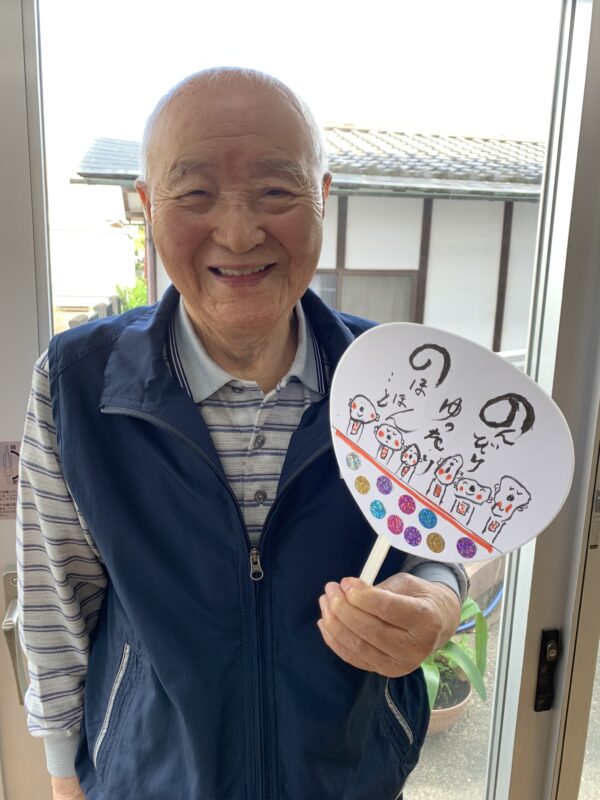 のんびり
ゆったり
のほ
ほんと